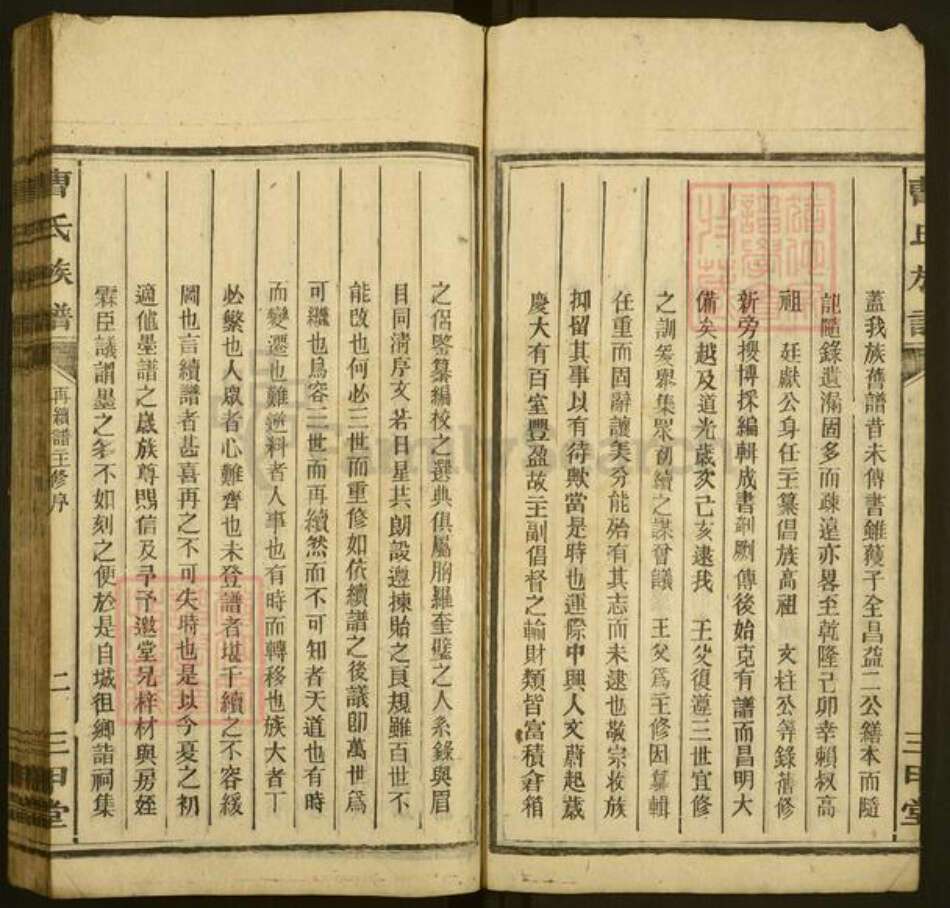 蓋我族舊譜昔未傳書雖獲子全昌益二公繕本而隨
記隨錄遺漏固多而疎遠亦畧至乾隆己卯幸賴叔高
祖 廷獻公身任主纂倡族高祖 文柱公等錄舊修
新旁搜博採編輯成書剞劂傳後始克有譜而昌明大
備矣越及道光歲次己亥逮我 王父復遵三世宜修
之訓爰聚集眾創續之謀會議 王父爲主修因纂輯
任重而固辭讓美分能殆有其志而未逮也敬宗收族
抑留其事以有待歟當是時也運際中興人文蔚起歲
慶大有百室豐盈故主副倡督之輸財類皆富積倉箱
之侶鑒纂編校之選典俱屬胸羅奎璧之人系錄與眉
目同清序文若日星共朗設遵揀貽之良規雖百世不
能改也何必三世而重修如依續譜之後議卽萬世爲
可繼也爲容三世而再續然而不可知者天道也有時
而變遷也難逆料者人事也有時而轉移也族大者丁
必繁也人眾者心難齊也未登譜者堪千續之不容緩
圖也言續譜者甚喜再之不可失時也是以今夏之初
適修墨譜之歲族尊賜信及予予邀堂兄梓材與房姪
霖臣議謂墨之多不如刻之便於是自城徂鄉詣祠集
曹氏族譜
再續譜主修序
二
三甲堂
曹氏族譜
三甲堂